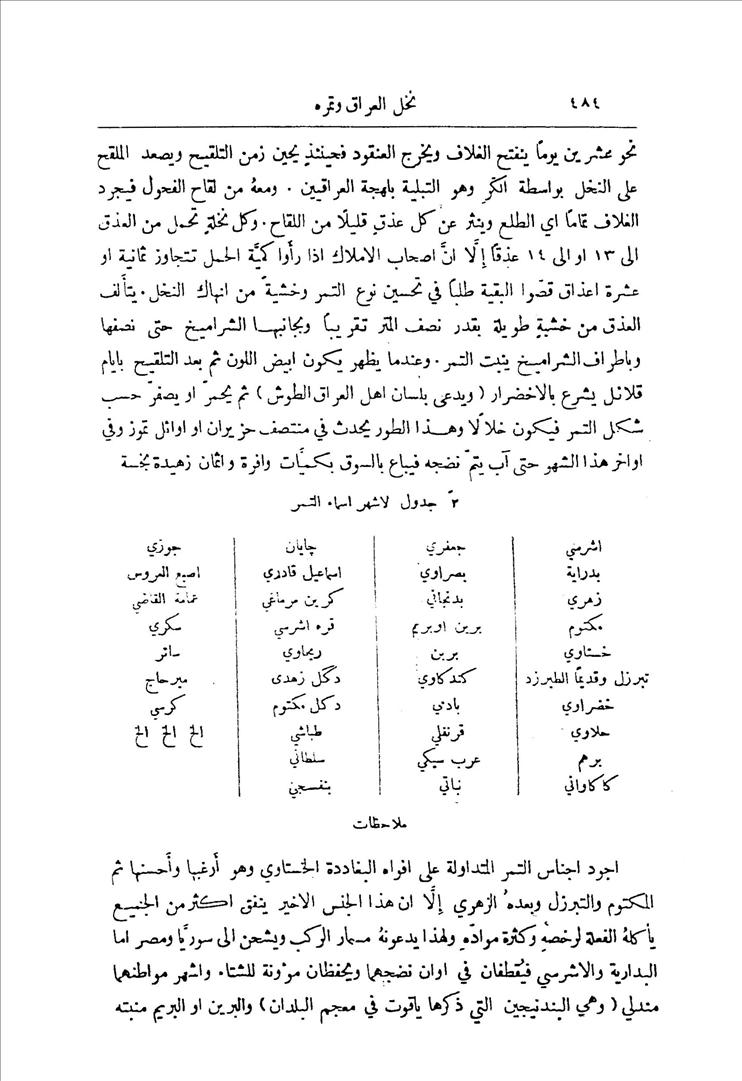 ٤٨٤ نخل العراق وتمره
نحو عشرين يوماً ينفتح الغلاف ويخرج العنقود فحينئذٍ يحين زمن التلقيح ويصعد الملقح
على النخل بواسطة الكرّ وهو التبلية بلهجة العراقيين . ومعهُ من لقاح الفحول فيجرد
الغلاف تماماً اي الطلع وينثر عن كل عذقٍ قليلًا من اللقاح. وكل نخلةٍ تحمل من العذق
الى ١٣ او الى ١٤ عذقاً إلَّا انَّ اصحاب الاملاك اذا رأوا كميَّة الحمل تتجاوز ثمانية او
عشرة اعذاق قصّوا البقية طلباً في تحسين نوع التمر وخشيةً من انهاك النخل. يتألف
العذق من خشبةٍ طويلة بقدر نصف المتر تقريباً وبجانبها الشراميخ حتى نصفها
وباطراف الشراميخ ينبت التمر. وعندما يظهر يكون ابيض اللون ثم بعد التلقيح بايام
قلائل يشرع بالاخضرار ( ويدعى بلسان اهل العراق الطوش ) ثم يحمرّ او يصفرّ حسب
شكل التمر فيكون خلالًا وهذا الطور يحدث في منتصف حزيران او اوائل تموز وفي
اواخر هذا الشهر حتى آب يتمّ نضجه فيباع بالسوق بكميَّات وافرة واثمان زهيدة بخسة
٣ً جدول لاشهر اسماء التمر
اشرسي جعفري چايان جوزي
بدراية بصراوي اسماعيل قادري اصبع العروس
زهري بدنجاني كرين مرماغي عمامة القاضي
مكتوم برين او بريم قره اشرسي سكري
خستاوي بربن ريحاوي ساتر
تبرزل وقديماً الطبرزد كندكاوي دگل زهدى ميرحاج
خضراوي بادمي دكل مكتوم كرسي
حلاوي قرنفلي طباشي الخ الخ الخ
برهم عرب سيكي سلطاني
كاكاواني نباتي بنفسجي
ملاحظات
اجود اجناس التمر المتداولة على افواه البغاددة الخستاوي وهو أرغبها وأحسنها ثم
المكتوم والتبرزل وبعدهُ الزهري إلَّا ان هذا الجنس الاخير ينفق اكثر من الجميع
يأكلهُ الفعلة لرخصهِ وكثرة موادّهِ ولهذا يدعونهُ مسمار الركب ويشحن الى سوريَّا ومصر اما
البدارية والاشرسي فيُقطفان في اوان نضجهما ويحفظان مؤونة للشتاء واشهر مواطنهما
مندلي ( وهي البندنيجين التي ذكرها ياقوت في معجم البلدان ) والبرين او البريم منبته